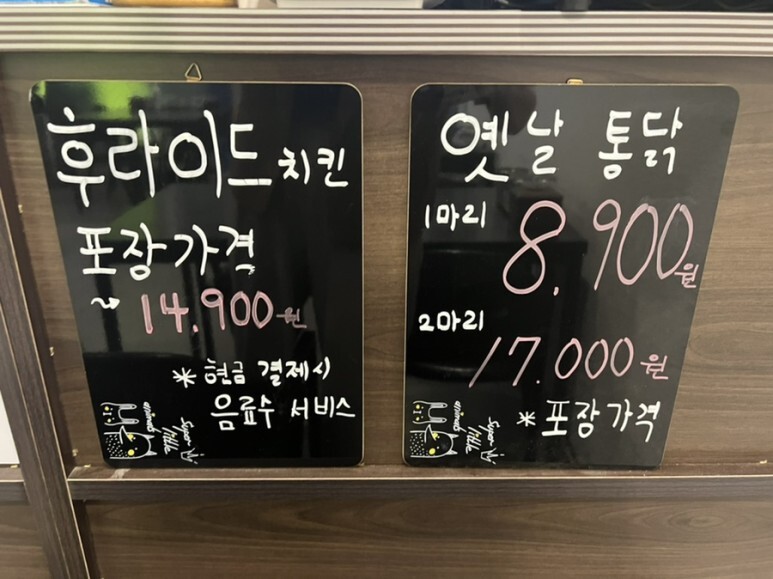 후라이드 치킨
포장가격
14.900원
* 현금 결제시
음료수 서비스
옛날 통닭
1마리 8,900원
2마리
17.000원
* 포장가격